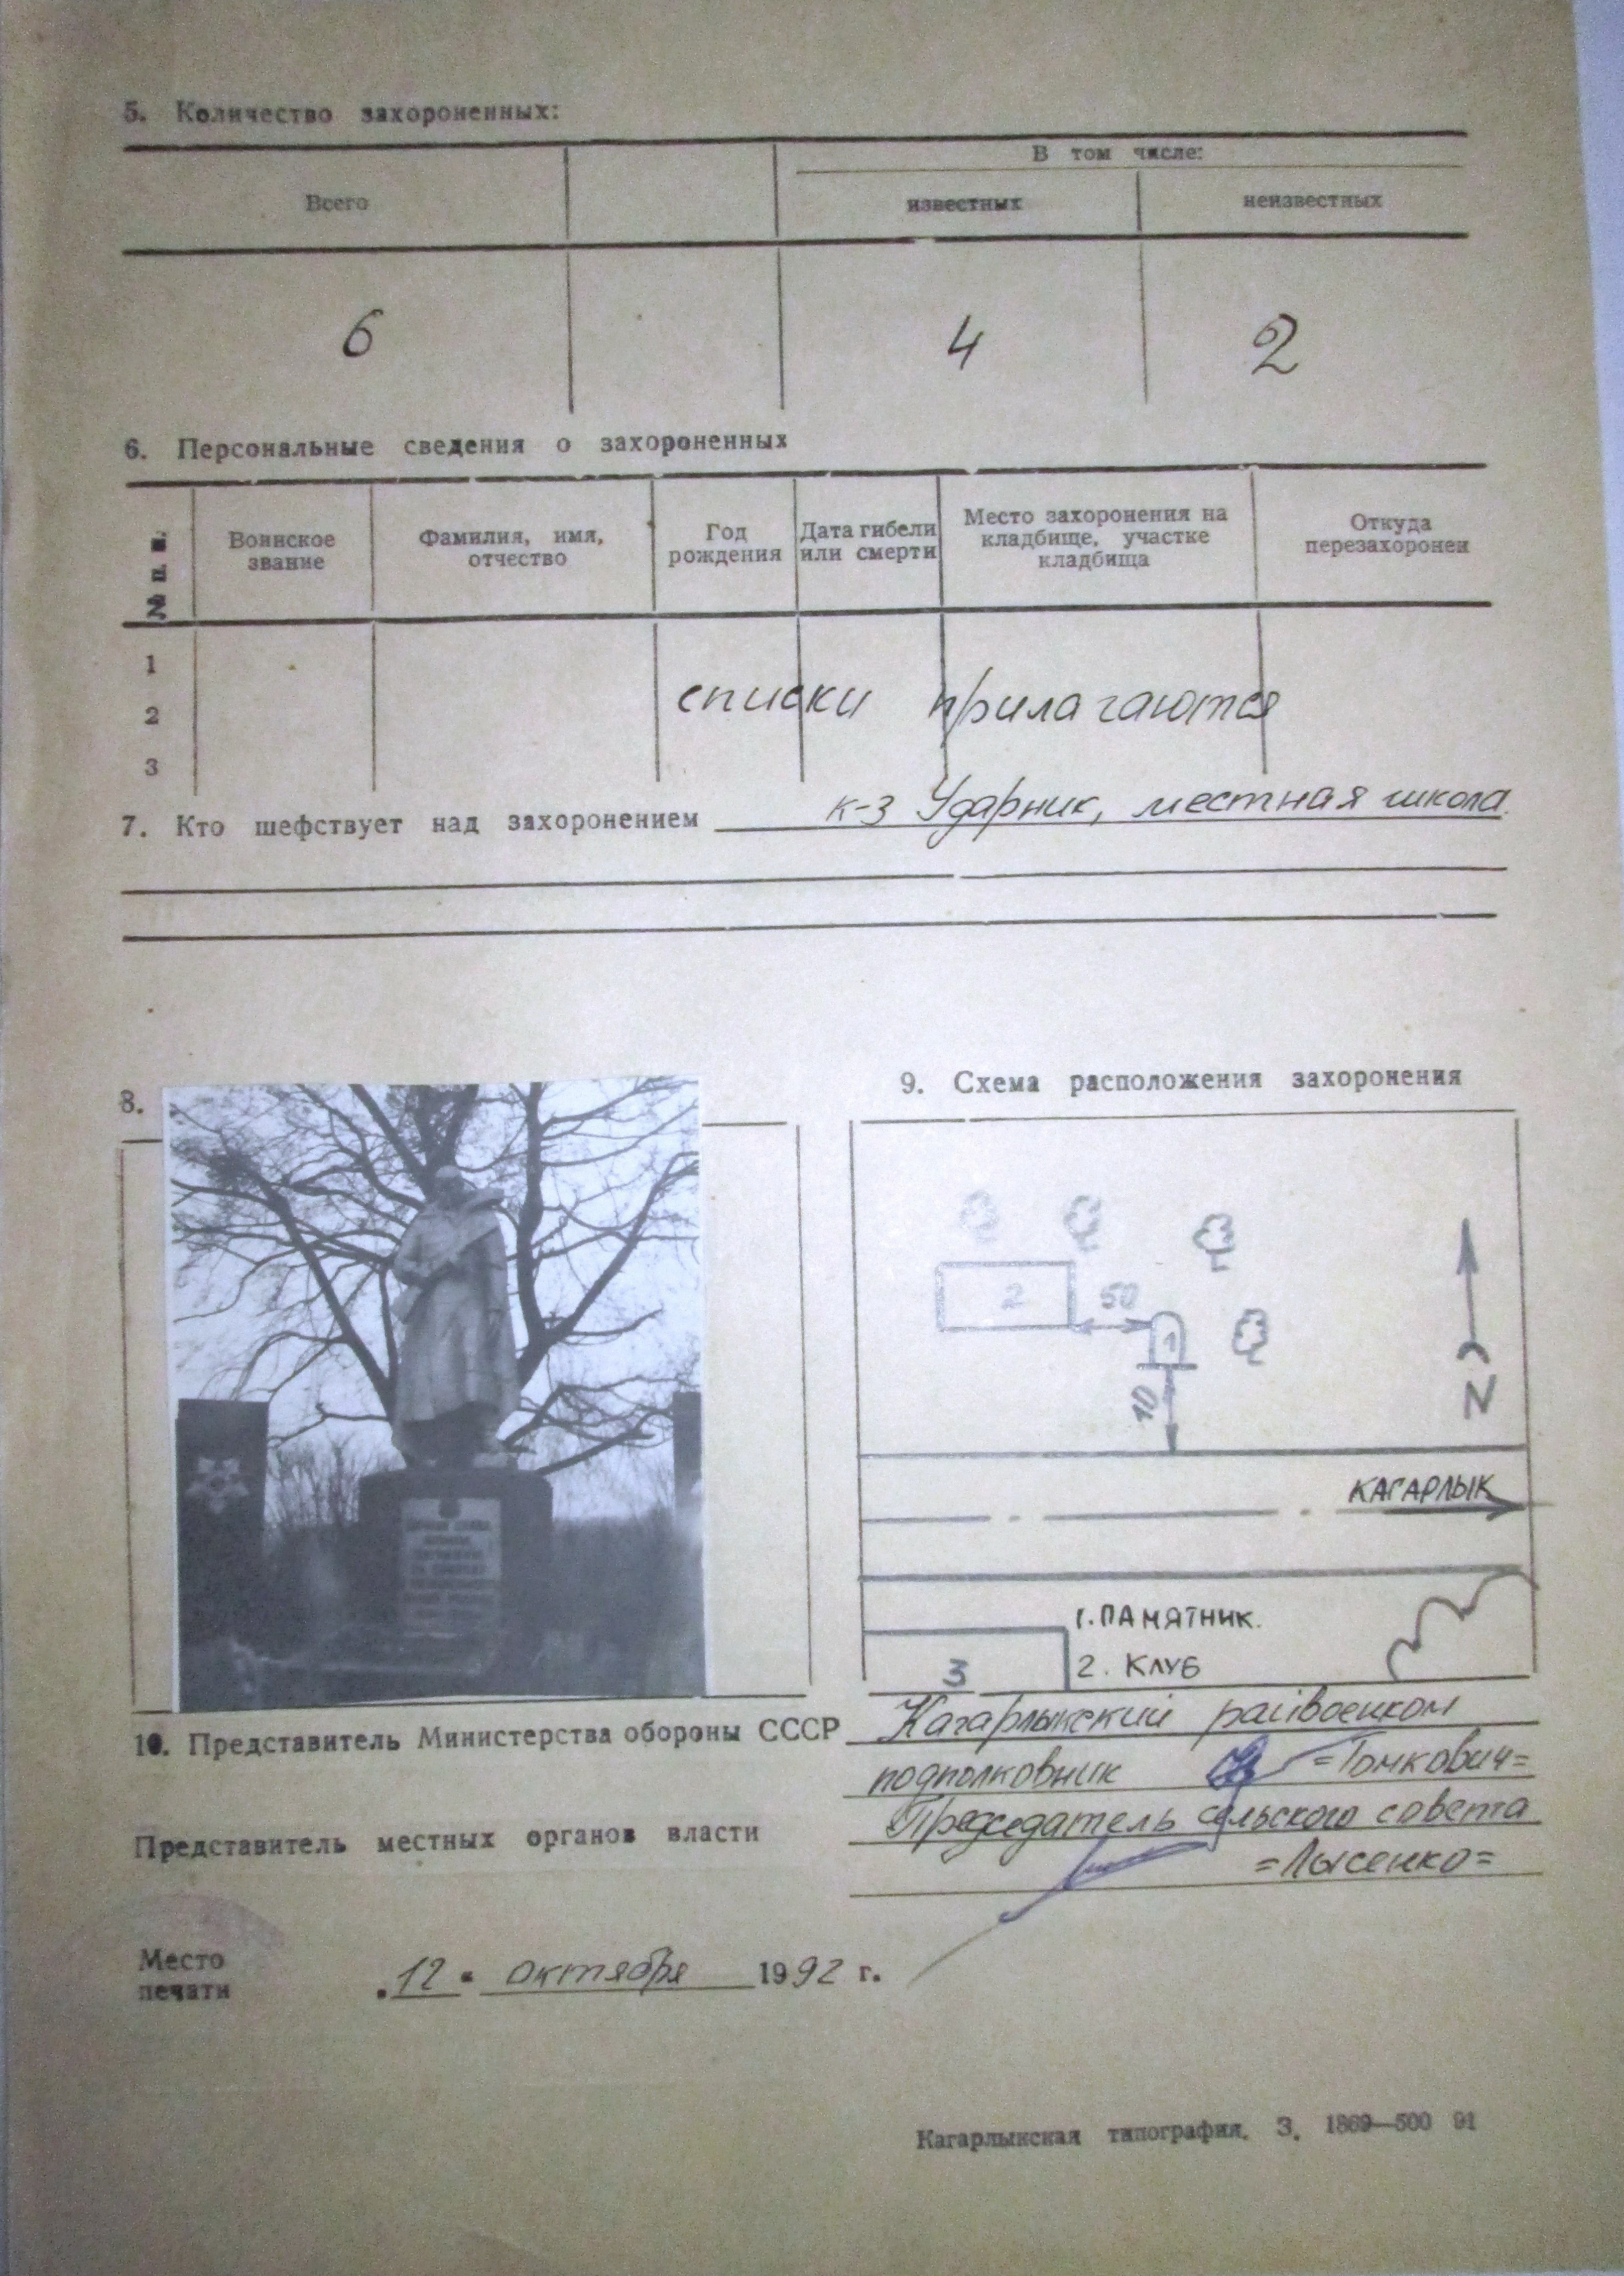 5. Количество захороненных:
В том числе:
Всего известных неизвестных
6 4 2
6. Персональные сведения о захороненных
№ п. п. Воинское звание Фамилия, имя, отчество Год рождения Дата гибели или смерти Место захоронения на кладбище, участке кладбища Откуда перезахоронен
1
списки прилагаются
2
3
7. Кто шефствует над захоронением к-з Ударник, местная школа.
8.
9. Схема расположения захоронения
2
50
1
10
N
КАГАРЛЫК
1. ПАМЯТНИК.
3
2. КЛУБ
10. Представитель Министерства обороны СССР Кагарлыкский райвоенком
подполковник =Томкович=
Председатель сельского совета
Представитель местных органов власти
=Лысенко=
Место
печати
„12" октября 1992 г.
Кагарлыкская типография. З. 1869—500 91